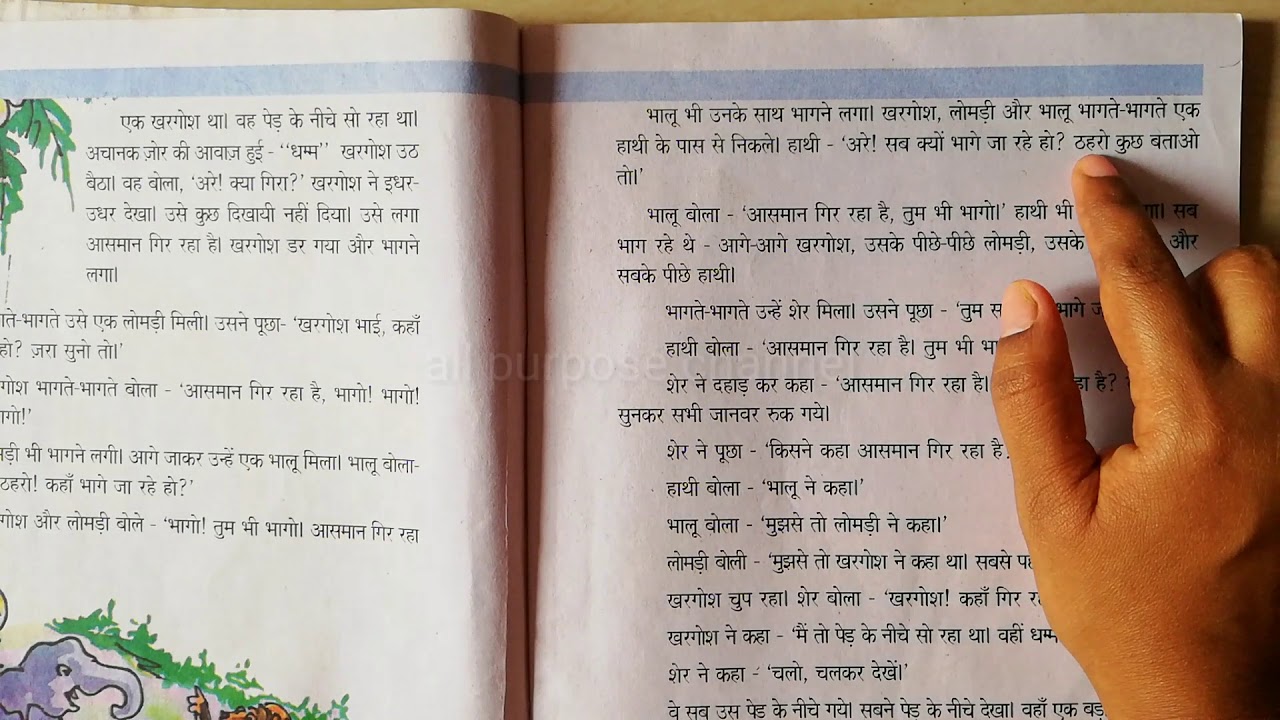 एक खरगोश था। वह पेड़ के नीचे सो रहा था।
अचानक ज़ोर की आवाज़ हुई - ‘‘धम्म’’ खरगोश उठ
बैठा। वह बोला, ‘अरे! क्या गिरा?’ खरगोश ने इधर-
उधर देखा। उसे कुछ दिखायी नहीं दिया। उसे लगा
आसमान गिर रहा है। खरगोश डर गया और भागने
लगा।
उसे एक लोमड़ी मिली। उसने पूछा- ‘खरगोश भाई, कहाँ
हो? ज़रा सुनो तो।’
भागते-भागते बोला - ‘आसमान गिर रहा है, भागो! भागो!
भी भागने लगी। आगे जाकर उन्हें एक भालू मिला। भालू बोला-
ठहरो! कहाँ भागे जा रहे हो?’
और लोमड़ी बोले - ‘भागो! तुम भी भागो। आसमान गिर रहा
भालू भी उनके साथ भागने लगा। खरगोश, लोमड़ी और भालू भागते-भागते एक
हाथी के पास से निकले। हाथी - ‘अरे! सब क्यों भागे जा रहे हो? ठहरो कुछ बताओ
तो।’
भालू बोला - ‘आसमान गिर रहा है, तुम भी भागो।’ हाथी भी सब
भाग रहे थे - आगे-आगे खरगोश, उसके पीछे-पीछे लोमड़ी, उसके और
सबके पीछे हाथी।
भागते-भागते उन्हें शेर मिला। उसने पूछा - ‘तुम भागे
हाथी बोला - ‘आसमान गिर रहा है। तुम भी
शेर ने दहाड़ कर कहा - ‘आसमान गिर रहा है। है?
सुनकर सभी जानवर रुक गये।
शेर ने पूछा - ‘किसने कहा आसमान गिर रहा है
हाथी बोला - ‘भालू ने कहा।’
भालू बोला - ‘मुझसे तो लोमड़ी ने कहा।’
लोमड़ी बोली - ‘मुझसे तो खरगोश ने कहा था। सबसे
खरगोश चुप रहा। शेर बोला - ‘खरगोश! कहाँ गिर
खरगोश ने कहा - ‘मैं तो पेड़ के नीचे सो रहा था। वहीं धम्म
शेर ने कहा - ‘चलो, चलकर देखें।’
वे सब उस पेड़ के नीचे गये। सबने पेड़ के नीचे देखा। वहाँ एक
all purpose channel